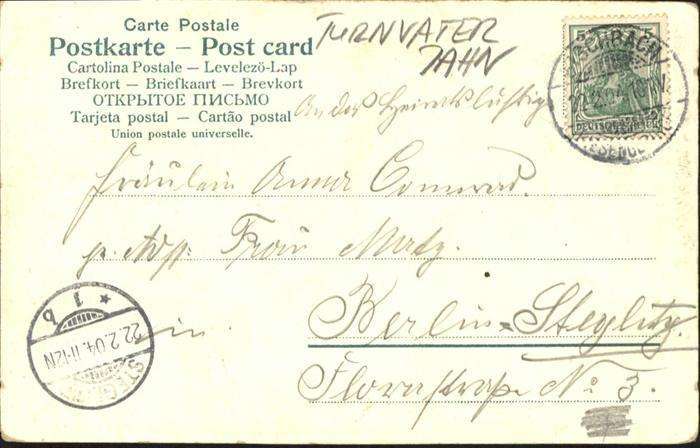 Carte Postale
Postkarte – Post card
Cartolina Postale – Levelező-Lap
Brefkort – Briefkaart – Brevkort
ОТКРЫТОЕ ПИСЬМО
Tarjeta postal – Cartão postal
Union postale universelle.
TURNVATER
JAHN
An der
5 5
DEUTSCHES REICH
Fräulein Anna Conrad.
p. Adr. Frau Matz.
in Berlin-Steglitz.
Florastraße No 3.
* 1 b
22.2.04. 11-12N